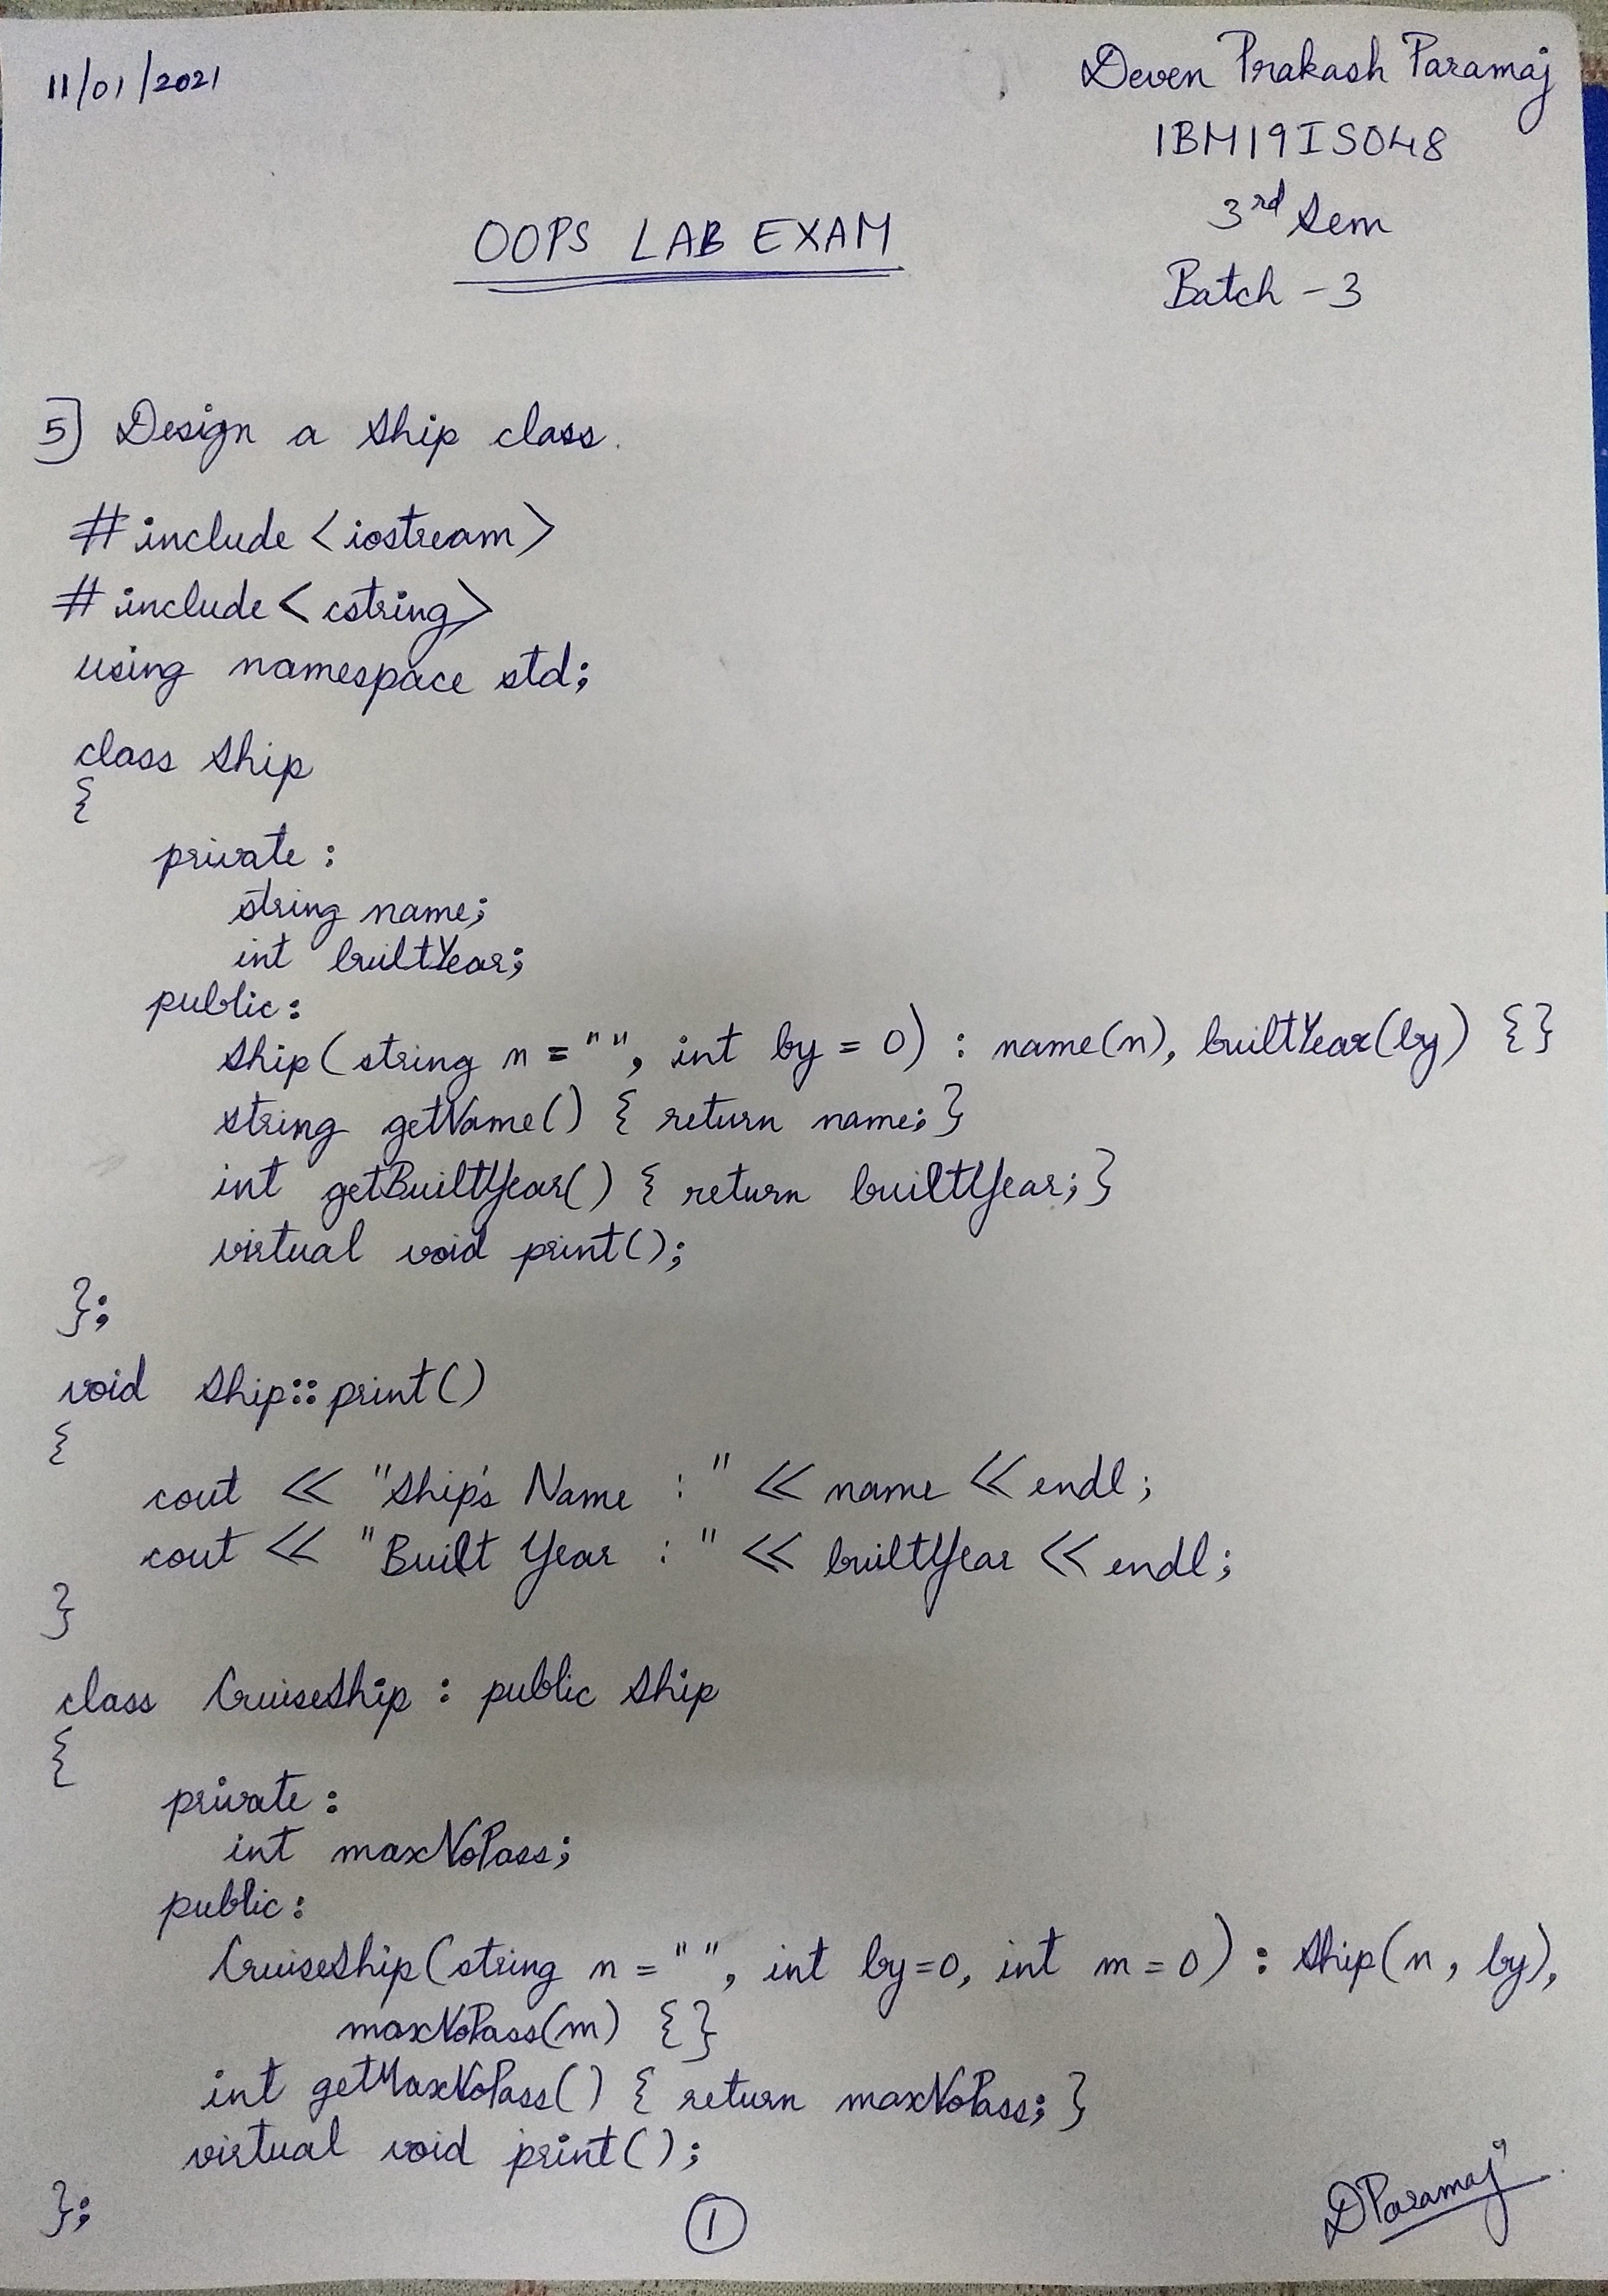 11/01/2021
Deven Prakash Paramaj
1BM19IS048
3rd Sem
Batch - 3
OOPS LAB EXAM
5] Design a Ship class.
#include <iostream>
#include <cstring>
using namespace std;
class Ship
{
private :
string name;
int builtYear;
public:
Ship(string n = "", int by = 0) : name(n), builtYear(by) {}
string getName() { return name; }
int getBuiltYear() { return builtYear; }
virtual void print();
};
void Ship::print()
{
cout << "Ship's Name : " << name << endl;
cout << "Built Year : " << builtYear << endl;
}
class CruiseShip : public Ship
{
private :
int maxNoPass;
public:
CruiseShip(string n = "", int by=0, int m = 0) : Ship(n, by),
maxNoPass(m) {}
int getMaxNoPass() { return maxNoPass; }
virtual void print();
};
1
DParamaj